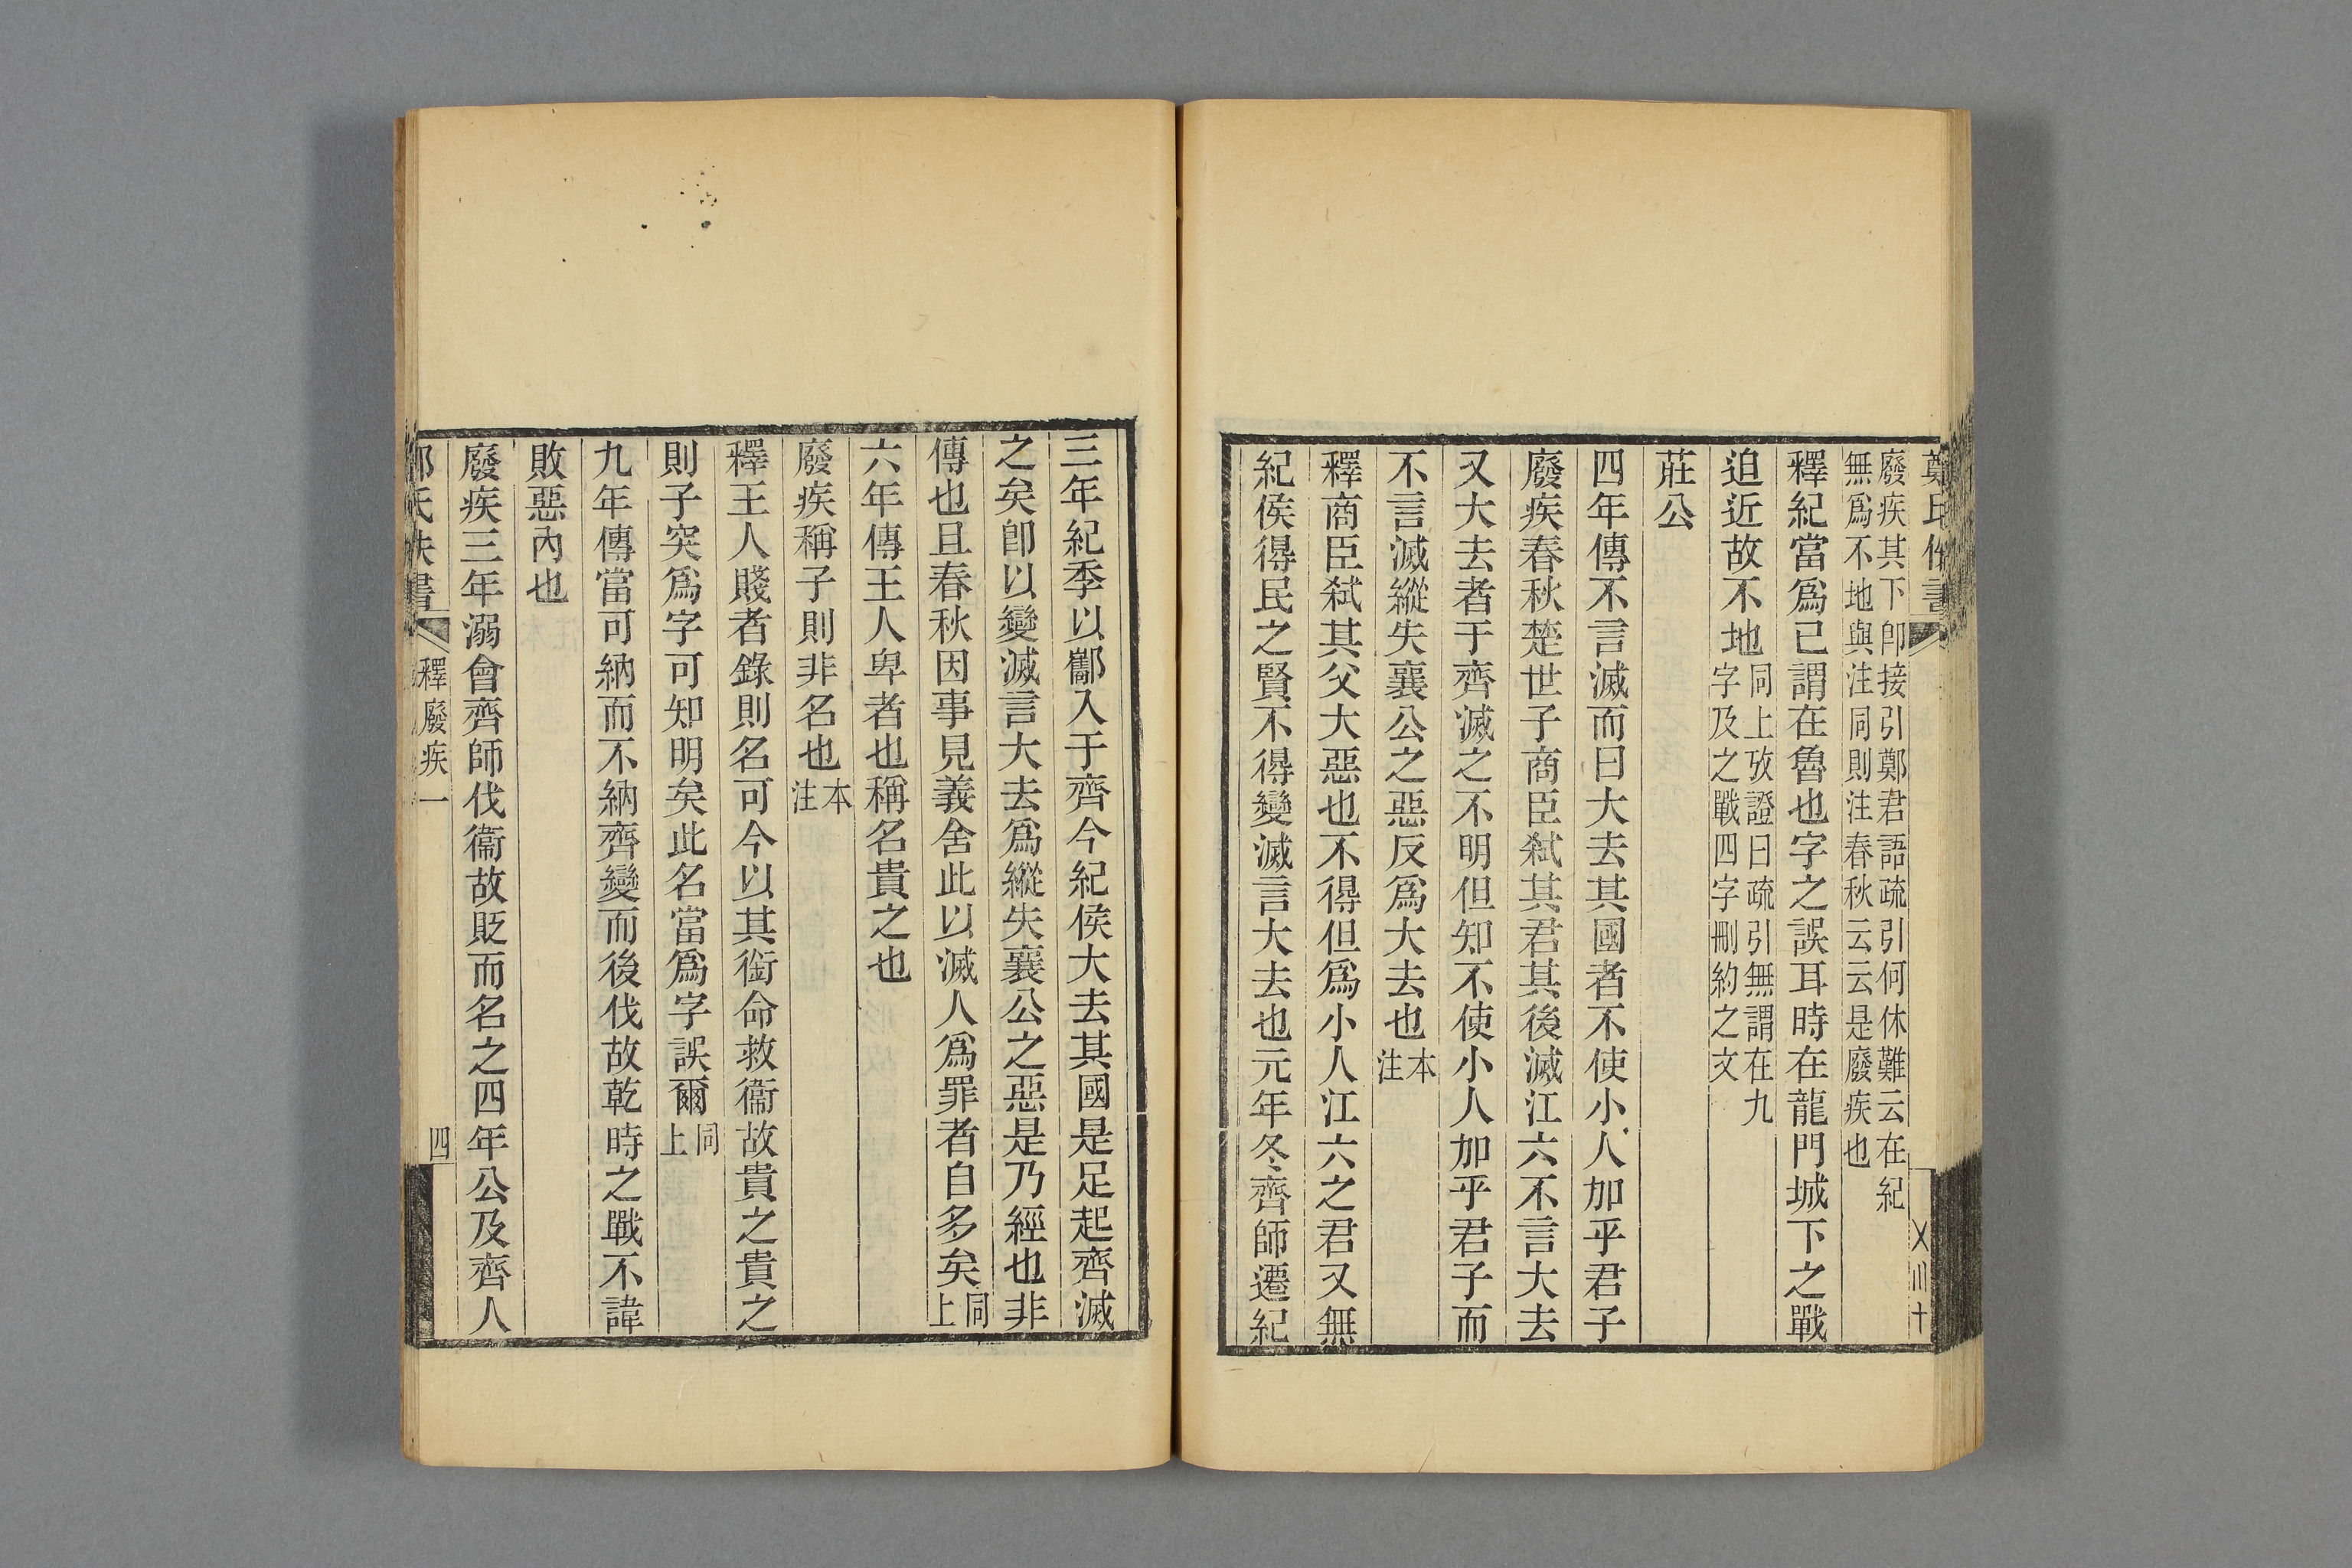 廢疾其下卽接引鄭君語疏引何休難云在紀
無爲不地與注同則注春秋云云是廢疾也
釋紀當爲已謂在魯也字之誤耳時在龍門城下之戰
迫近故不地同上攷證曰疏引無謂在九
字及之戰四字刪約之文
莊公
四年傳不言滅而曰大去其國者不使小人加乎君子
廢疾春秋楚世子商臣弑其君其後滅江六不言大去
又大去者于齊滅之不明但知不使小人加乎君子而
不言滅縱失襄公之惡反爲大去也本注
釋商臣弑其父大惡也不得但爲小人江六之君又無
紀侯得民之賢不得變滅言大去也元年冬齊師遷紀
三年紀季以酅入于齊今紀侯大去其國是足起齊滅
之矣卽以變滅言大去爲縱失襄公之惡是乃經也非
傳也且春秋因事見義舍此以滅人爲罪者自多矣同上
六年傳王人卑者也稱名貴之也
廢疾稱子則非名也本注
釋王人賤者錄則名可今以其銜命救衞故貴之貴之
則子突爲字可知明矣此名當爲字誤爾同上
九年傳當可納而不納齊變而後伐故乾時之戰不諱
敗惡內也
廢疾三年溺會齊師伐衞故貶而名之四年公及齊人
釋廢疾一
四